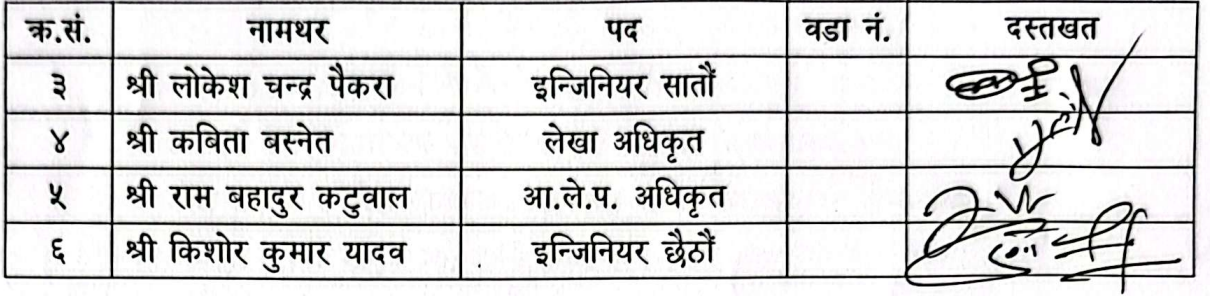 क्र.सं. नामथर पद वडा नं. दस्तखत
३ श्री लोकेश चन्द्र पैकरा इन्जिनियर सातौं
४ श्री कबिता बस्नेत लेखा अधिकृत
५ श्री राम बहादुर कटुवाल आ.ले.प. अधिकृत
६ श्री किशोर कुमार यादव इन्जिनियर छैठौं